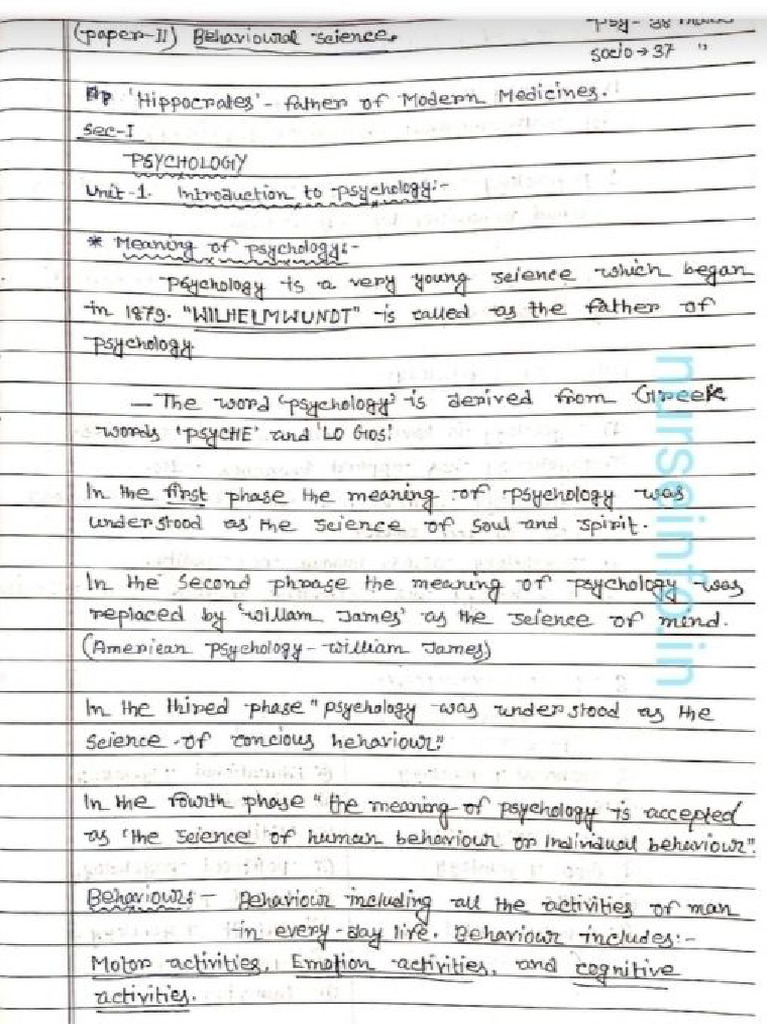 (paper-II) Behavioural science.
psy- 38
socio→37 "
'Hippocrates' - father of Modern Medicines.
Sec-I
PSYCHOLOGIY
Unit-1. Introduction to psychology:-
* Meaning of psychology:-
Psychology is a very young science which began
in 1879. "WILHELMWUNDT" is called as the father of
psychology.
— The word 'psychology' is derived from Greek
words 'PSYCHE' and 'LO GIOS'.
In the first phase the meaning of psychology was
understood as the science of soul and spirit.
In the second phrase the meaning of psychology was
replaced by 'willam James' as the science of mind.
(American psychology - william James)
In the thired phase "psychology was understood as the
science of concious behaviour"
In the fourth phase "the meaning of psychology is accepted
as 'the science' of human behaviour or Individual behaviour".
Behaviours:- Behaviour including all the activities of man
in every-day life. Behaviour includes:-
Motor activities, Emotion activities, and cognitive
activities.
nurseinfo.in